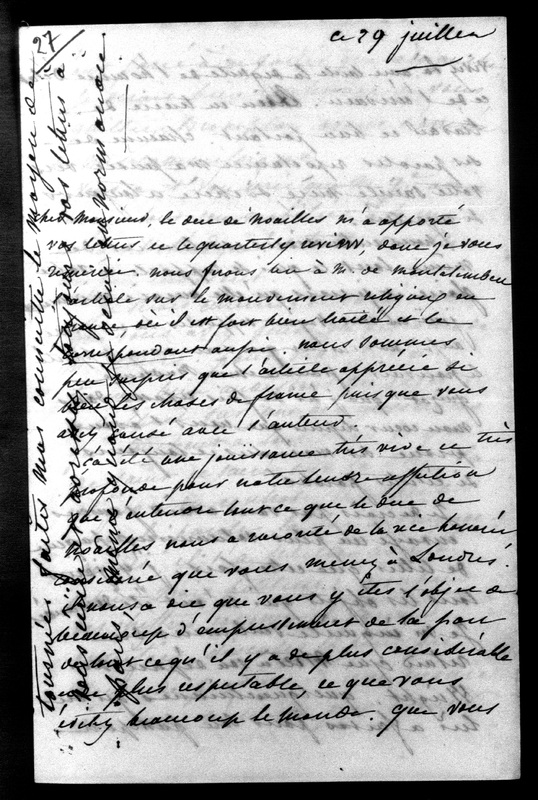 27
ce 29 juillet
cher Monsieur, le duc de Noailles m'a apporté
vos lettres et le quarterly review, dont je vous
remercie. nous ferons lire à m. de montalembert
l'article sur le mouvement religieux en
france, où il est fort bien traité et le
correspondant aussi. nous sommes
peu surpris que l'article apprécie si
bien les choses de france puisque vous
avez causé avec l'auteur.
ç'a été une jouissance très vive et très
profonde pour notre tendre affection
que d'entendre tout ce que le duc de
Noailles nous a raconté de la vie honorée
considérée que vous menez à Londres.
il nous a dit que vous y êtes l'objet de
beaucoup d'empressement de la part
de tout ce qu'il y a de plus considérable
et de plus respectable, et que vous
évitez beaucoup le monde. que vous
tournées faites mais conseillez le moyen de
vos lettres à